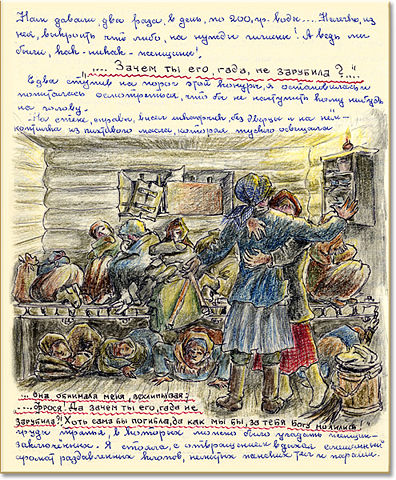 Нам давали, два раза в день, по 200 гр. воды.... Нелегко, из
неё, выкроить что либо, на нужды гигиены! А ведь мы
были, как-никак - женщины!
".... Зачем ты его, гада, не зарубила?"...
Едва ступив на порог этой конуры, я остановилась и
попыталась осмотреться, что бы не наступить кому нибудь
на голову.
На стене, справа, висел шкафчик без дверцы и на нём -
коптилка из постного масла, которая тускло освещала
... она обнимала меня, всхлипывая:
.... Фрося! Да зачем ты его, гада не
зарубила?! Хоть сама бы погибла, да как мы бы, за тебя Бога молили!..."
груды тряпья, в которых можно было угадать женщин-
заключённых. Я стояла, с отвращением вдыхая смешанный
аромат раздавленных клопов, немытых тел и параши.